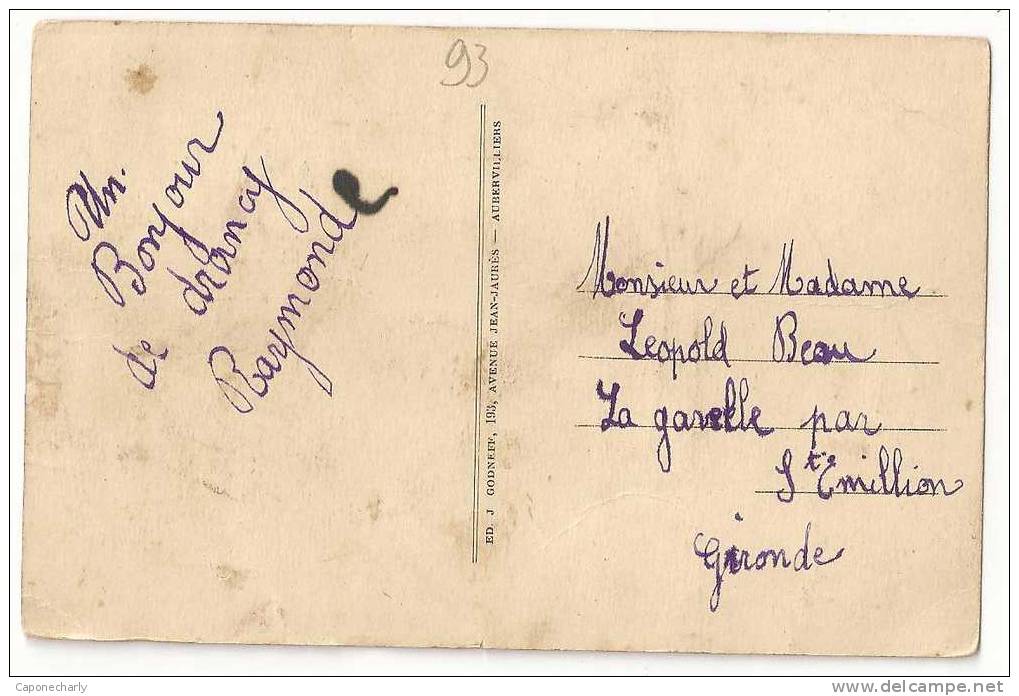 93
Un
Bonjour
de drancy
Raymonde
ED. J GODNEFF, 193, AVENUE JEAN-JAURÈS — AUBERVILLIERS
Monsieur et Madame
Leopold Beau
La gavelle par
Ste Emillion
Gironde
Caponecharly
www.delcampe.net